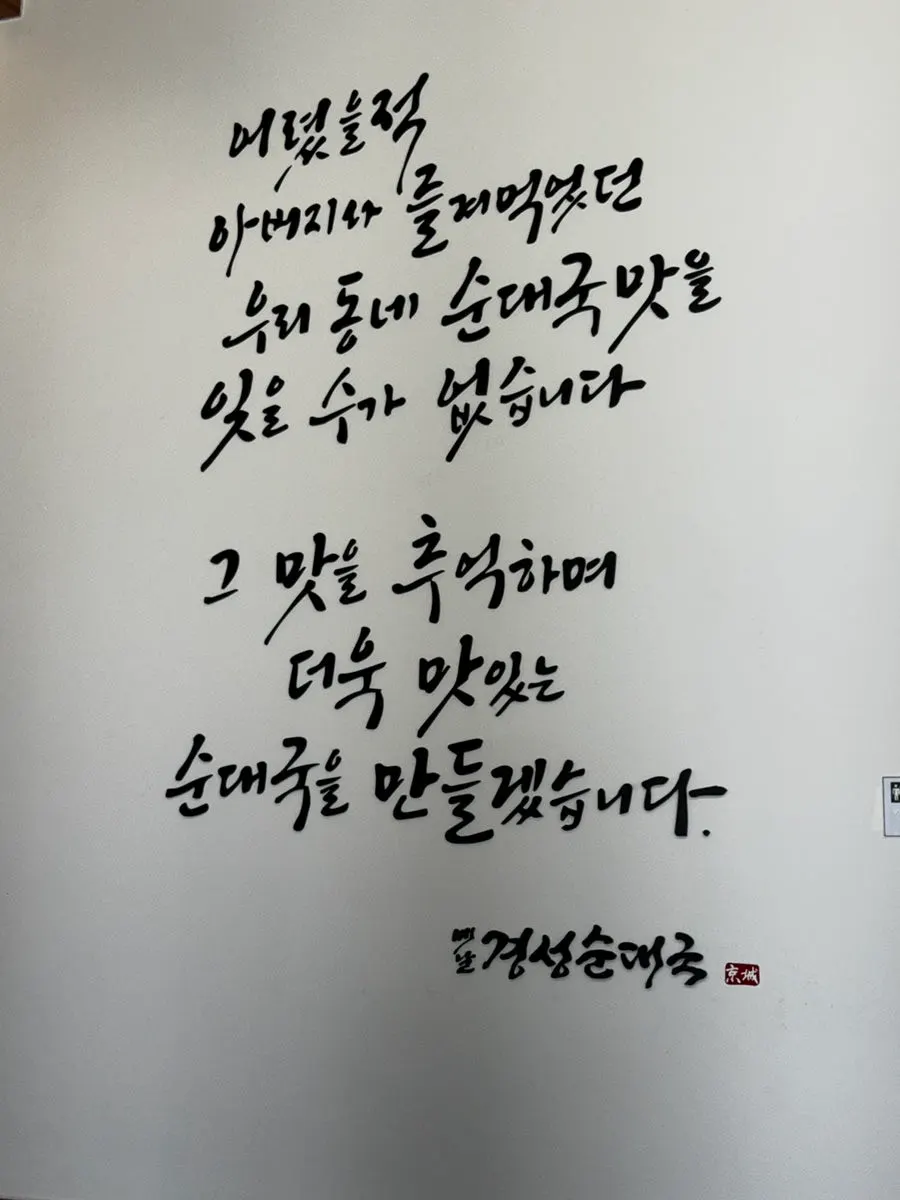 어렸을적
아버지와 즐겨먹었던
우리 동네 순대국 맛을
잊을 수가 없습니다
그 맛을 추억하며
더욱 맛있는
순대국을 만들겠습니다.
옛날 경성순대국 京城